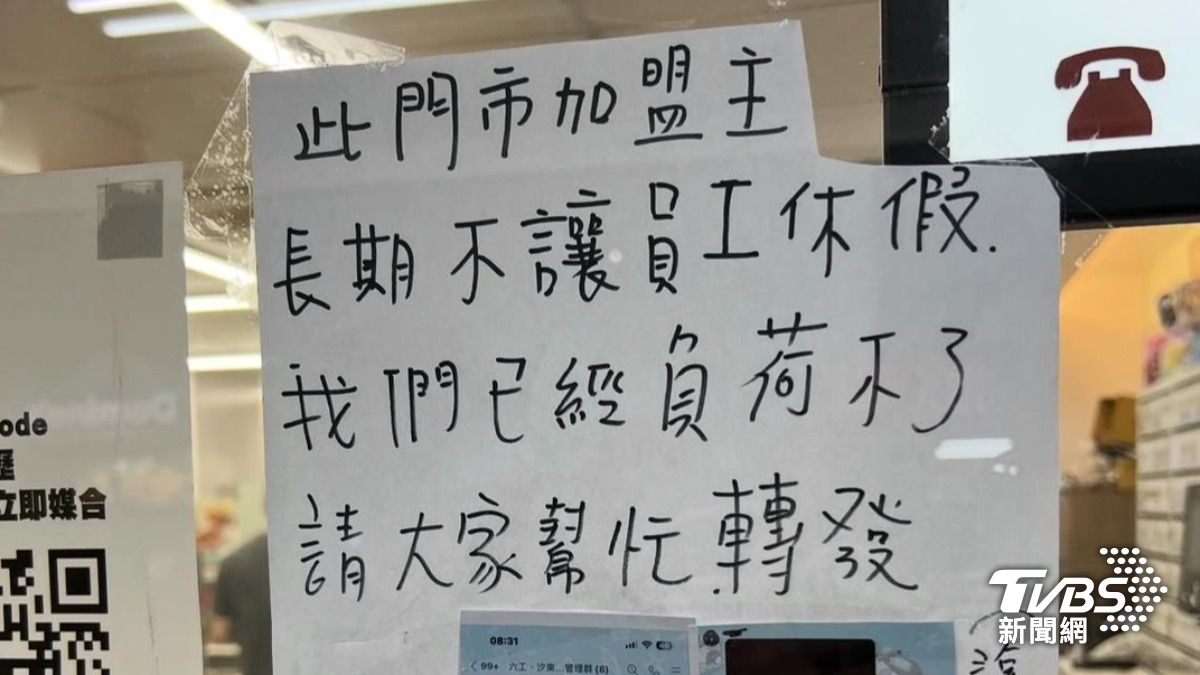 此門市加盟主
長期不讓員工休假.
我們已經負荷不了
請大家幫忙.轉發
ode
歷
立即媒合
08:31
99+ 六工、汐東...管理群 (6)
TVBS
新聞網